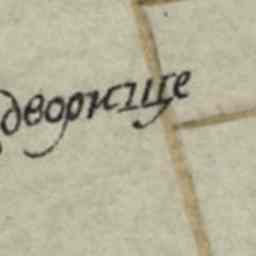 дворище